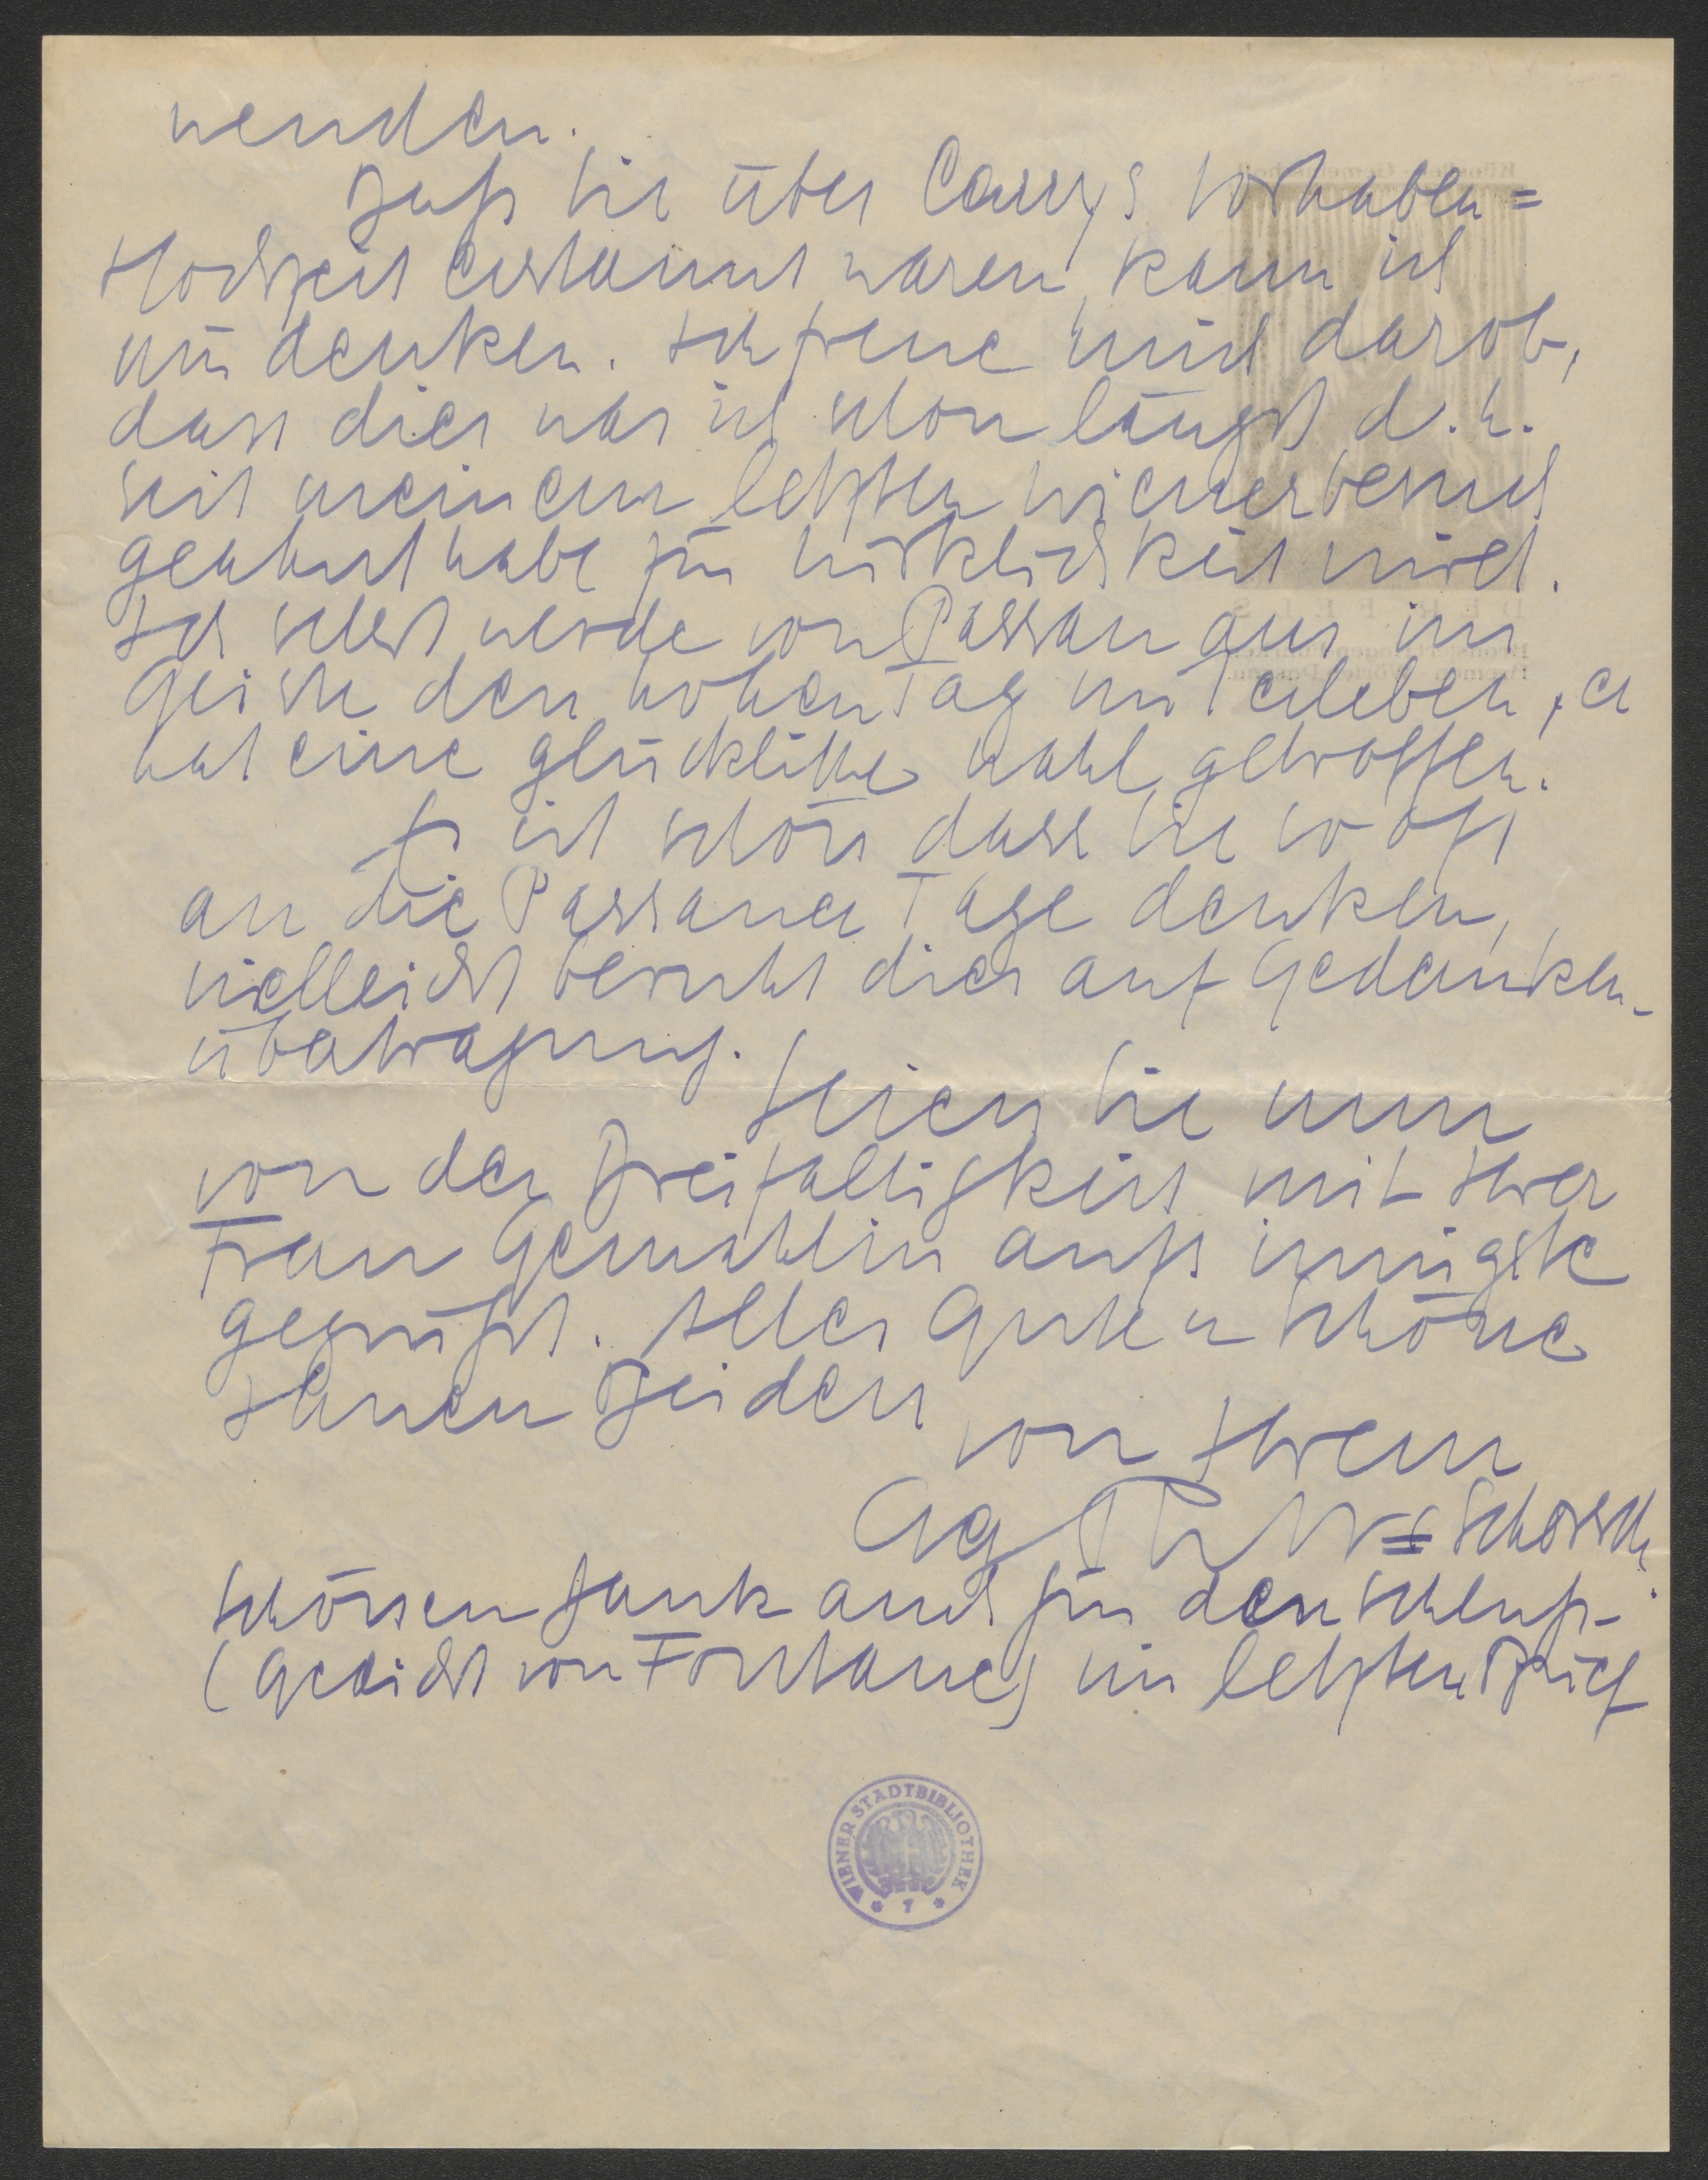 wenden.
Daß Sie über Carrys Vorhaben=
Hochzeit erstaunt waren, kann ich
mir denken. Ich freue mich darob,
dass dies was ich schon längst d. h.
seit meinem letzten Wienerbesuch
geahnt habe zur Wirklichkeit wird.
Ich selbst werde von Passau aus im
Geiste den hohen Tag mit erleben, er
hat eine glückliche Wahl getroffen.
Es ist schön dass Sie so oft
an die Passauer Tage denken,
vielleicht beruht dies auf Gedanken-
übertragung.
Seien Sie nun
von der Dreifaltigkeit mit Ihrer
Frau Gemahlin aufs innigste
gegrüßt. Alles Gute u Schöne
Ihnen Beiden
von Ihrem
= Schorsch.
Schönen Dank auch für den Schluß-
(Gedicht von Fontane) im letzten Brief
WIENER STADTBIBLIOTHEK
* 7 *